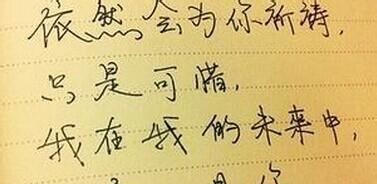 依然会为你祈祷,
只是可惜,
我在我的未来中,